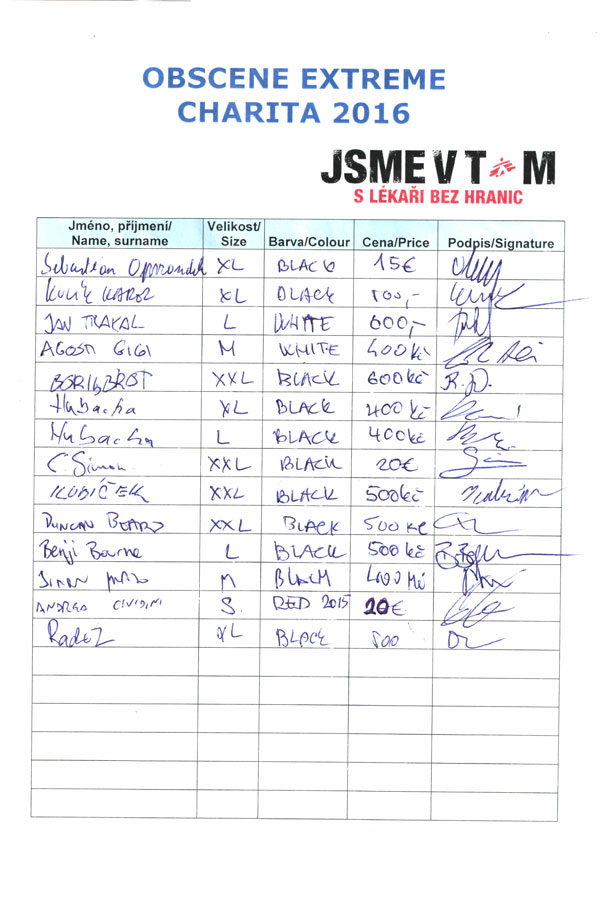 OBSCENE EXTREME
CHARITA 2016
JSME V TOM
S LÉKAŘI BEZ HRANIC
Jméno, příjmení/ Name, surname Velikost/ Size Barva/Colour Cena/Price Podpis/Signature
Sebastian XL BLACK 15€
KULIK KAROL XL BLACK 500,-
JAN TRAKAL L WHITE 600,-
AGOSTI GIGI M WHITE 400kč
XXL BLACK 600kč R.D.
Hubacha XL BLACK 400 kč
Hubacha L BLACK 400kč
C. Simon XXL BLACK 20€
KUBIČEK XXL BLACK 500kč
DUNCAN BEARD XXL BLACK 500 kč
Benji Bourne L BLACK 500 kč
M BLACK 400
ANDREA CIVIDINI S. RED 2015 20€
Radez XL BLACK 500